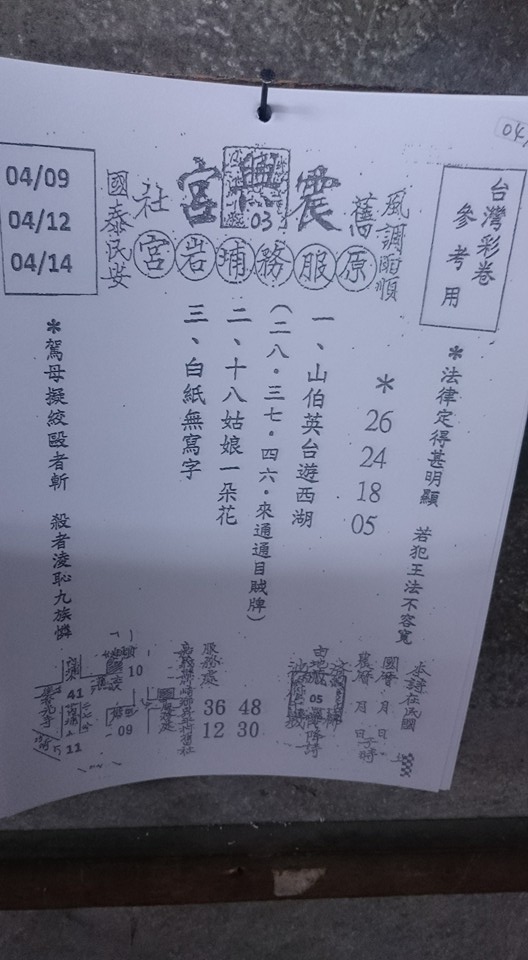 台灣彩卷
參考用
風調雨順
震興宮
03
舊社
國泰民安
原服務埔岩宮
04/09
04/12
04/14
*法律定得甚明顯 若犯王法不容寬
* 26 24 18 05
一、山伯英台遊西湖
(二八．三七．四六．來通通目賊牌)
二、十八姑娘一朵花
三、白紙無寫字
*駕母擬絞毆者斬 殺者凌恥九族憐
國曆 月 日
農曆 月 日子時
05
服務處
36 48
12 30
10
09
41
11